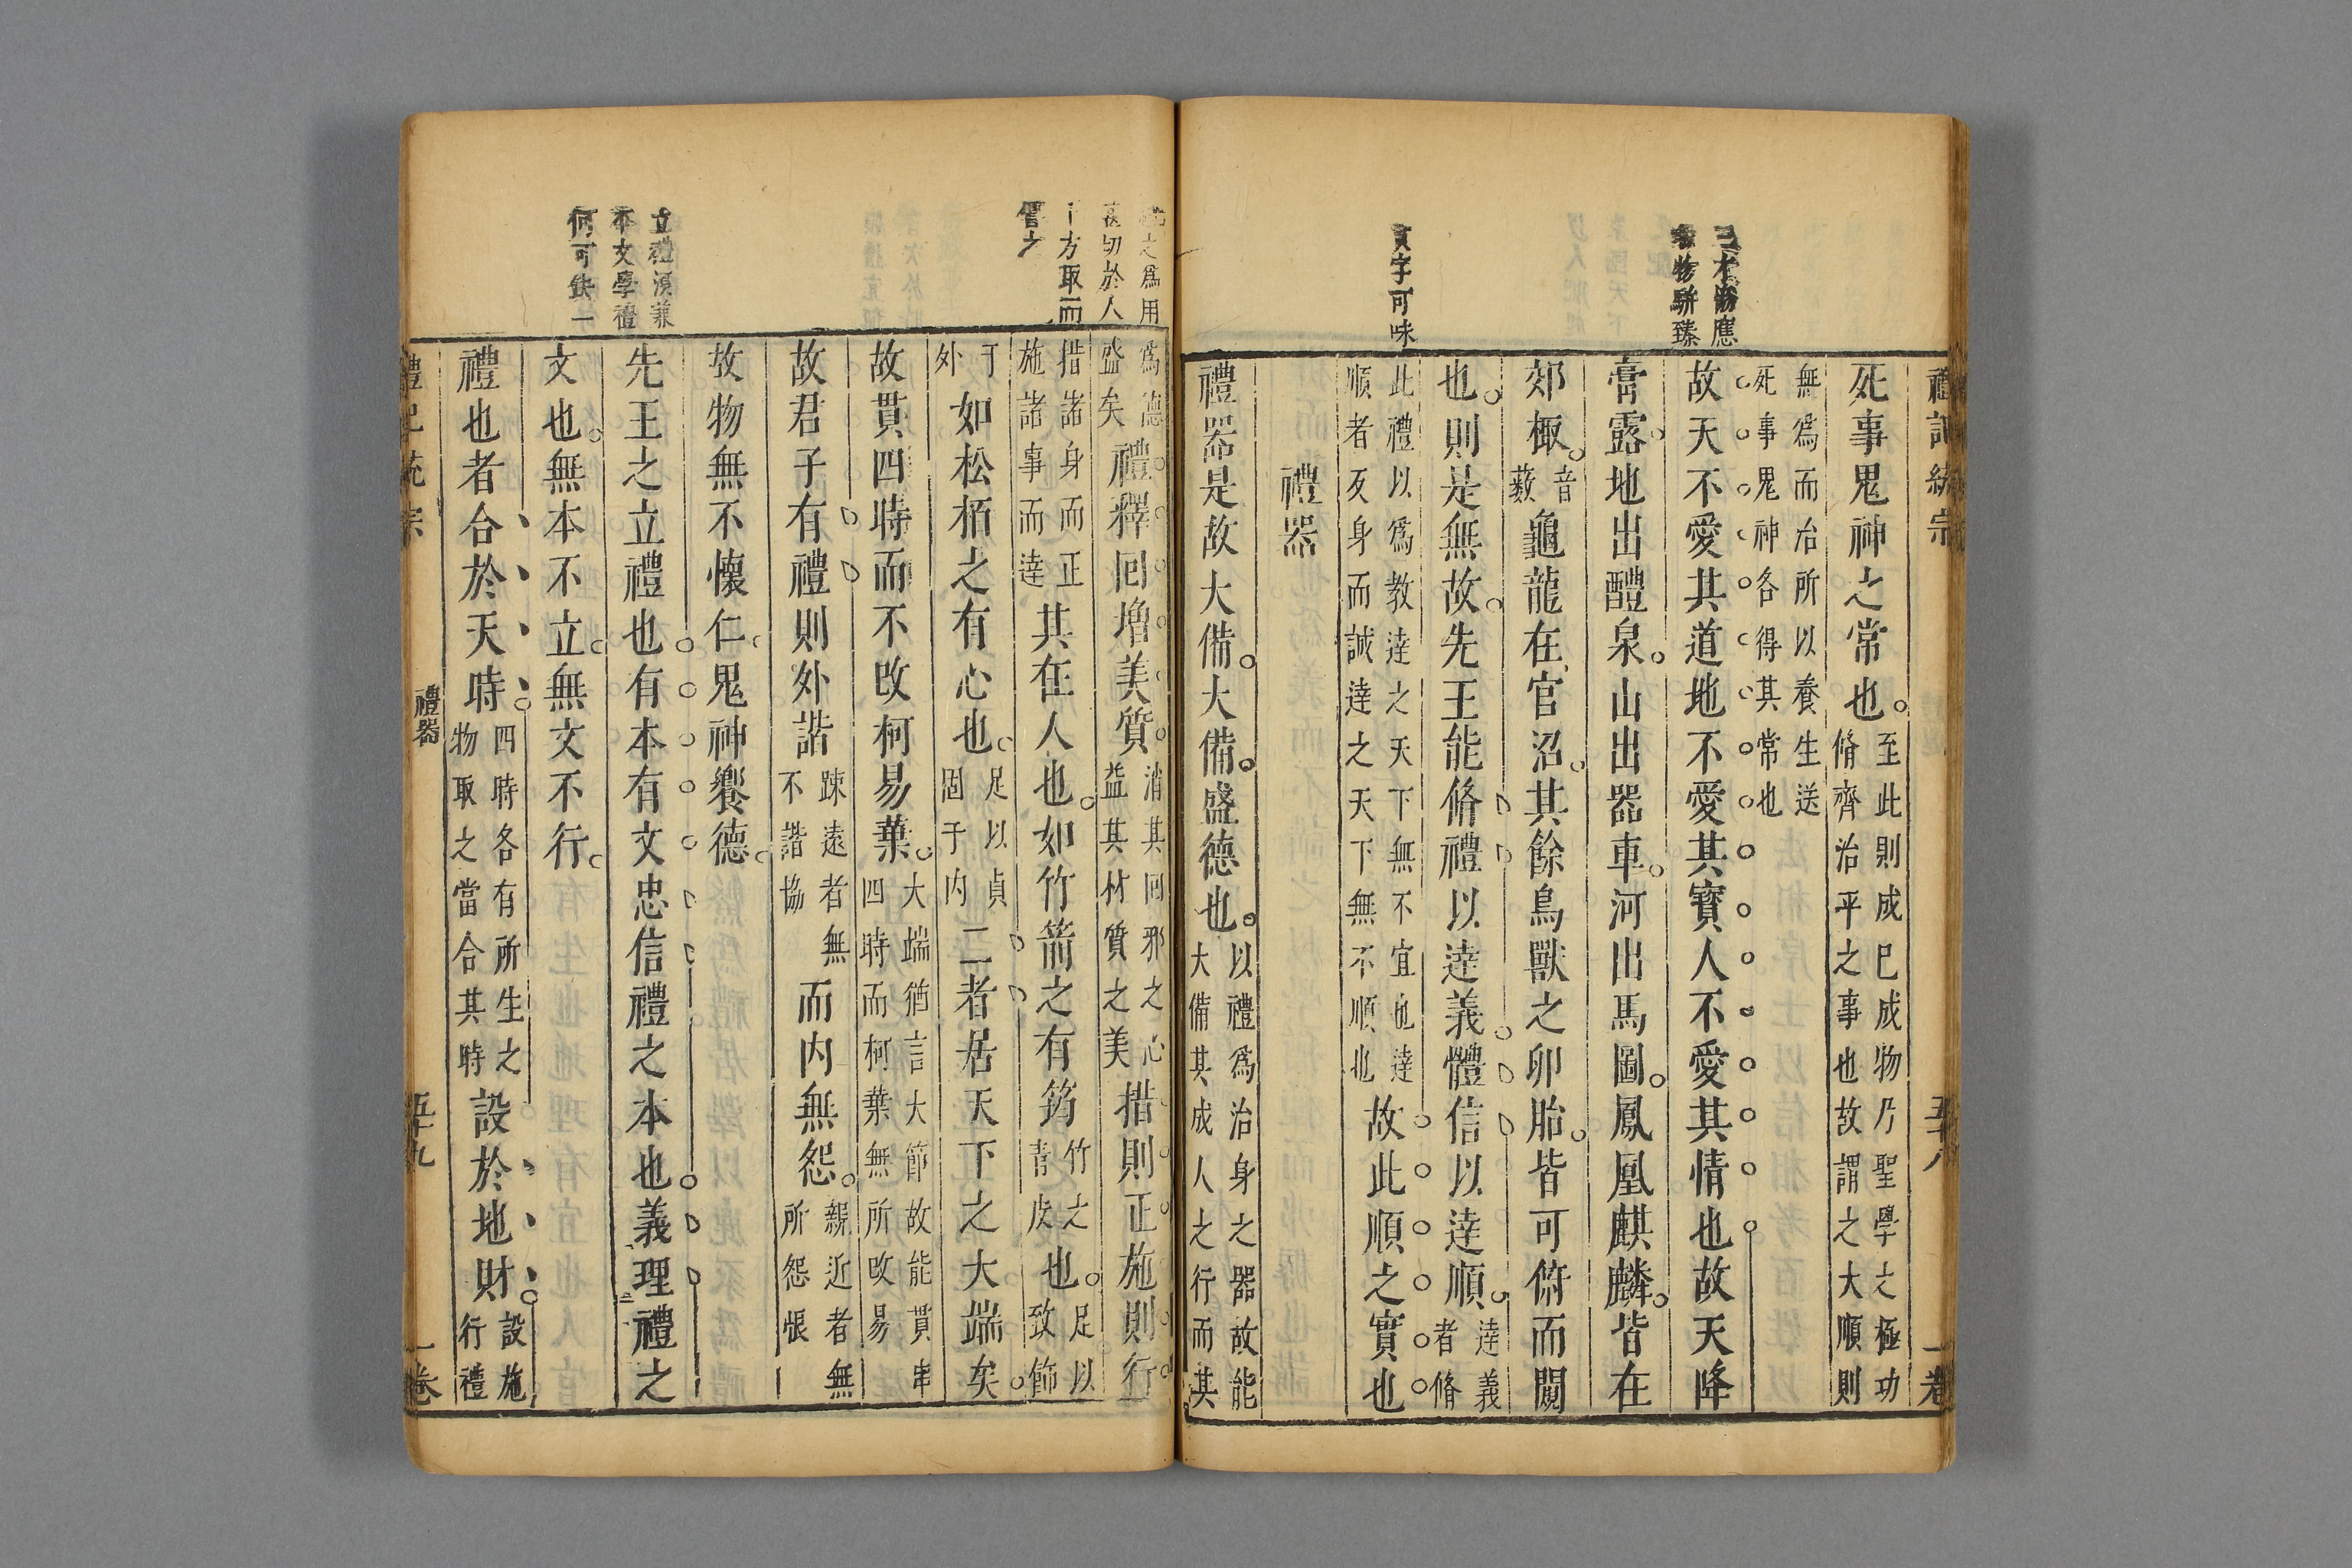 三才
物駢臻
字可味
死事鬼神之常也。至此則成巳成物乃聖學之極功脩齊治平之事也故謂之大順則
無爲而治所以養生送死事鬼神各得其常也
故天不愛其道地不愛其寶人不愛其情也故天降
膏露。地出醴泉。山出器車。河出馬圖。鳳凰麒麟。皆在
郊棷。音藪龜龍在官沼。其餘鳥獸之卵胎。皆可俯而闚
也。則是無故。先王能脩禮以達義。體信以達順。達義者脩
此禮以爲教達之天下無不宜也達順者反身而誠達之天下無不順也故此順之實也
禮器
禮器是故大備。大備。盛德也。以禮爲治身之器故能大備其成人之行而其
五十八
一卷
之爲用
切於人
方取而
立禮須兼
本文學禮
何可缺一
爲德盛矣禮釋回增美質消其回邪之心益其材質之美措則正施則行
措諸身而正施諸事而達其在人也。如竹箭之有筠竹之青皮也。足以致飾
于外如松栢之有心也。足以貞固于内二者居天下之大端矣。
故貫四時而不改柯易葉。大端猶言大節故能貫串四時而柯葉無所改易
故君子有禮則外諧踈遠者無不諧協而内無怨。親近者無所怨恨
故物無不懷仁鬼神饗德。
先王之立禮也有本有文忠信禮之本也義理禮之
文也。無本不立。無文不行。
禮也者合於天時四時各有所生之物取之當合其時設於地財設施行禮
禮器
五十九
一卷